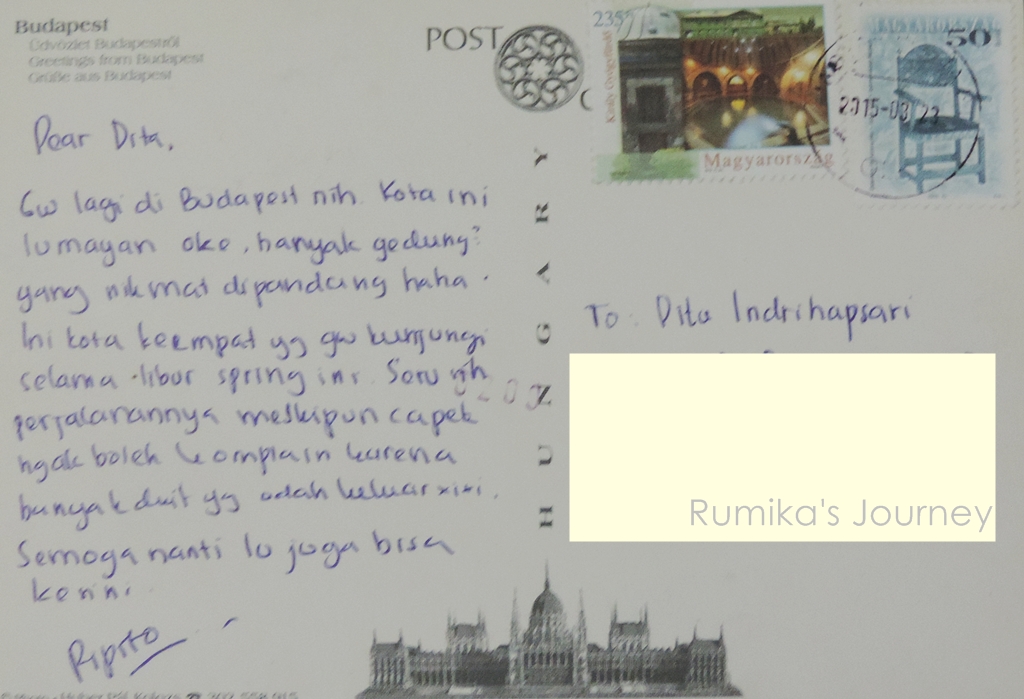 Budapest
Üdvözlet Budapestről
Greetings from Budapest
Grüße aus Budapest
POST
235Ft
Király Gyógyfürdő
Magyarország
MAGYARORSZÁG
50FT
2015-03 23
HUNGARY
Dear Dita,
Gw lagi di Budapest nih. Kota ini
lumayan oke, banyak gedung²
yang nikmat dipandang haha.
Ini kota keempat yg gw kunjungi
selama libur spring ini. Seru sih
perjalanannya meskipun capek
ngak boleh komplain karena
banyak duit yg udah keluar xixi.
Semoga nanti lu juga bisa
kesini.
Ripito
To: Dita Indrihapsari
Rumika's Journey